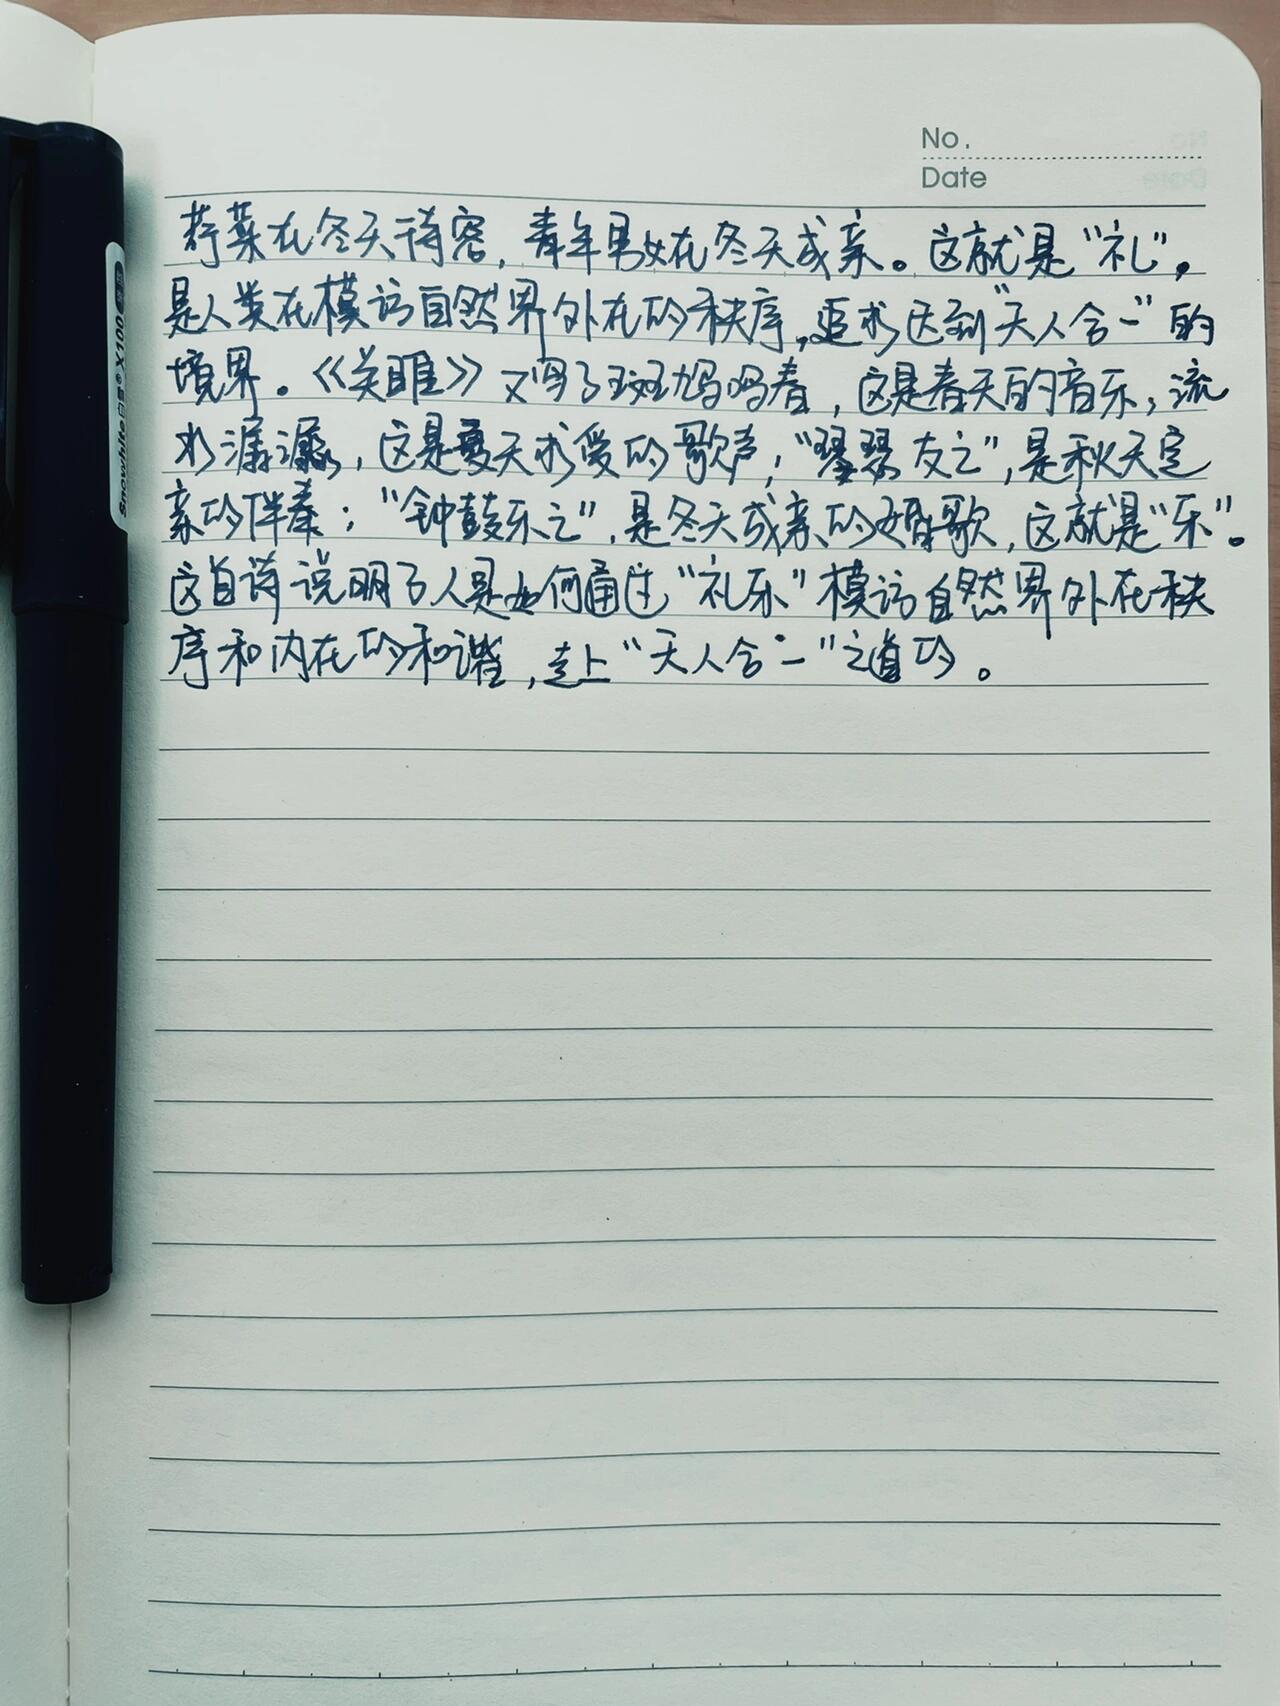 No.
Date
荇菜在冬天待客，青年男女在冬天成亲。这就是“礼”，
是人类在模访自然界外在的秩序，追求达到“天人合一”的
境界。《关雎》又写了斑鸠鸣春，这是春天的音乐；流
水潺潺，这是夏天求爱的歌声；“琴瑟友之”，是秋天定
亲的伴奏；“钟鼓乐之”，是冬天成亲的婚歌，这就是“乐”。
这首诗说明了人是如何通过“礼乐”模访自然界外在秩
序和内在的和谐，走上“天人合一”之道的。
Snowhite 白雪 X100